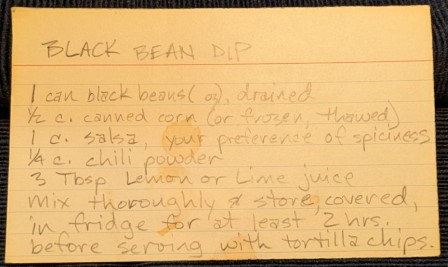 BLACK BEAN DIP
1 can black beans ( oz), drained
½ c. canned corn (or frozen, thawed)
1 c. salsa, your preference of spiciness
¼ c. chili powder
3 Tbsp Lemon or Lime juice
mix thoroughly & store, covered,
in fridge for at least 2 hrs.
before serving with tortilla chips.